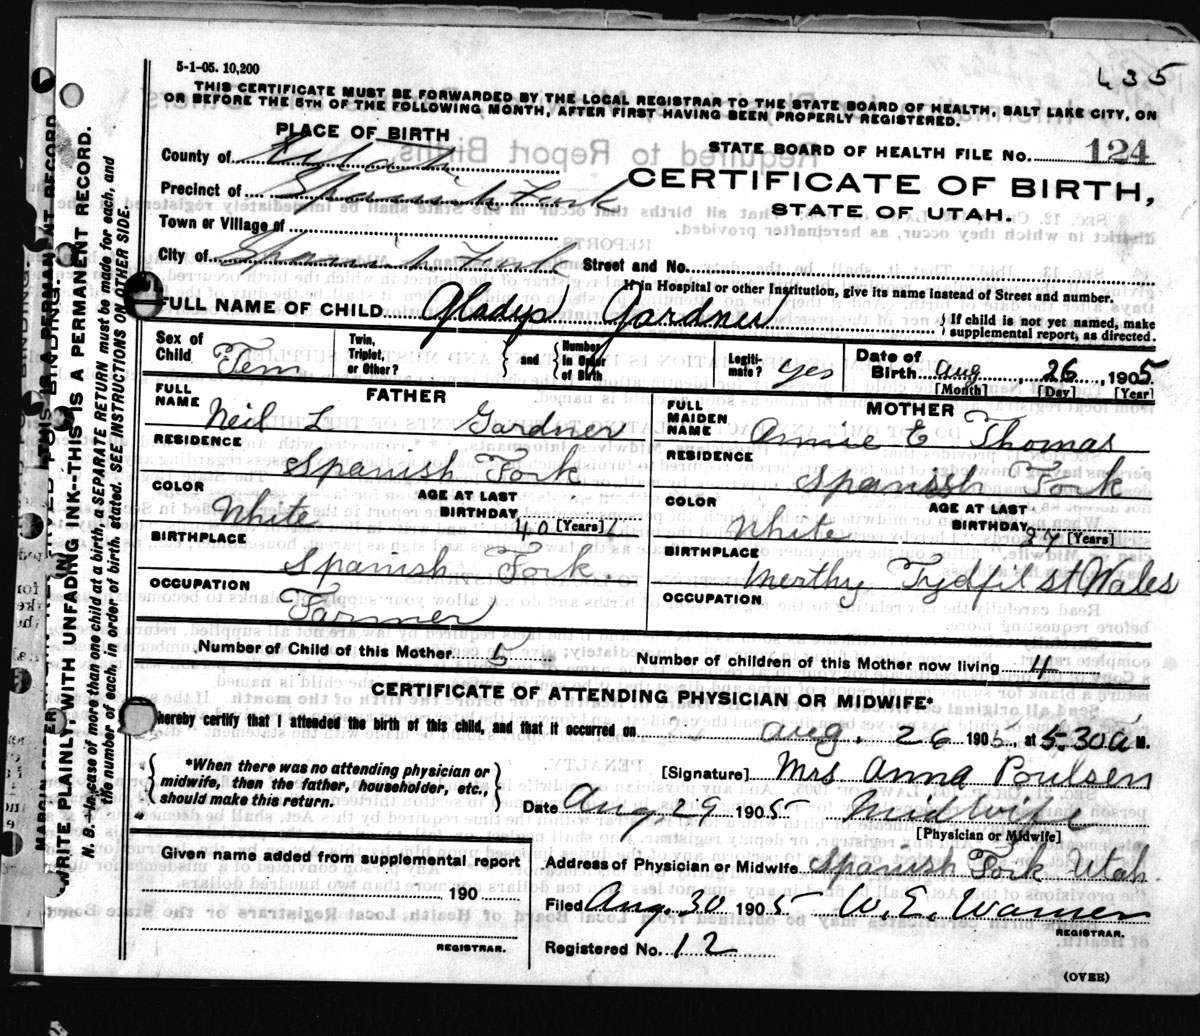 5-1-05. 10,200
435
THIS CERTIFICATE MUST BE FORWARDED BY THE LOCAL REGISTRAR TO THE STATE BOARD OF HEALTH, SALT LAKE CITY, ON
OR BEFORE THE 5TH OF THE FOLLOWING MONTH, AFTER FIRST HAVING BEEN PROPERLY REGISTERED.
PLACE OF BIRTH
STATE BOARD OF HEALTH FILE NO. 124
County of Utah
CERTIFICATE OF BIRTH,
Precinct of Spanish Fork
STATE OF UTAH.
Town or Village of
City of Spanish Fork Street and No.
If in Hospital or other Institution, give its name instead of Street and number.
FULL NAME OF CHILD Gladys Gardner
{ If child is not yet named, make
supplemental report, as directed.
Sex of Child Fem
Twin, Triplet, or Other? } and { Number In Order of Birth
Legiti-mate? yes
Date of Birth Aug 26, 1905.
[Month] [Day] [Year]
FATHER
FULL NAME Neil L Gardner
RESIDENCE Spanish Fork
COLOR White
AGE AT LAST BIRTHDAY 40 [Years]
BIRTHPLACE Spanish Fork
OCCUPATION Farmer
MOTHER
FULL MAIDEN NAME Annie E Thomas
RESIDENCE Spanish Fork
COLOR White
AGE AT LAST BIRTHDAY 37 [Years]
BIRTHPLACE Merthy Tydfil st Wales
OCCUPATION
Number of Child of this Mother 5 Number of children of this Mother now living 4
CERTIFICATE OF ATTENDING PHYSICIAN OR MIDWIFE*
hereby certify that I attended the birth of this child, and that it occurred on Aug. 26 1905, at 5.30 a M.
{ *When there was no attending physician or
midwife, then the father, householder, etc.,
should make this return. }
[Signature] Mrs Anna Poulsen
Date Aug 29 1905 Midwife
[Physician or Midwife]
Given name added from supplemental report
190
REGISTRAR.
Address of Physician or Midwife Spanish Fork Utah
Filed Aug. 30 1905 W. E. Warner
REGISTRAR.
Registered No. 12
(OVER)
WRITE PLAINLY WITH UNFADING INK--THIS IS A PERMANENT RECORD.
N. B.--In case of more than one child at a birth, a SEPARATE RETURN must be made for each, and
the number of each, in order of birth, stated. SEE INSTRUCTIONS ON OTHER SIDE.